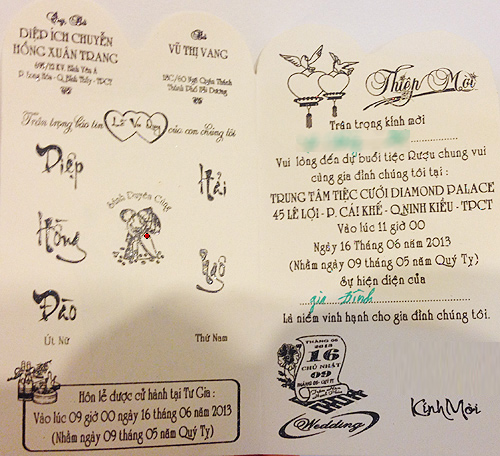 Ông, Bà
DIỆP ÍCH CHUYỂN
HỒNG XUÂN TRANG
695/12 KV. Bình Yên A
P. Long Hòa - Q. Bình Thủy - TPCT
Bà
VŨ THỊ VANG
18C/60 Ngô Quyền
Thành Phố Hải Dương
Trân trọng báo tin Lễ Vu Quy của con chúng tôi
Diệp
Hồng
Đào
Út Nữ
Sánh Duyên Cùng
Hải
Ngô
Thứ Nam
Hôn lễ được cử hành tại Tư Gia :
Vào lúc 09 giờ 00 ngày 16 tháng 06 năm 2013
(Nhằm ngày 09 tháng 05 năm Quý Tỵ)
Thiệp Mời
Trân trọng kính mời
Vui lòng đến dự buổi tiệc Rượu chung vui
cùng gia đình chúng tôi tại :
TRUNG TÂM TIỆC CƯỚI DIAMOND PALACE
45 LÊ LỢI - P. CÁI KHẾ - Q.NINH KIỀU - TPCT
Vào lúc 11 giờ 00
Ngày 16 Tháng 06 năm 2013
(Nhằm ngày 09 tháng 05 năm Quý Tỵ)
Sự hiện diện của
gia đình
Là niềm vinh hạnh cho gia đình chúng tôi.
THÁNG 06
2013
16
CHỦ NHẬT
09
THÁNG 05 - QUÝ TỴ
Wedding
Kính Mời